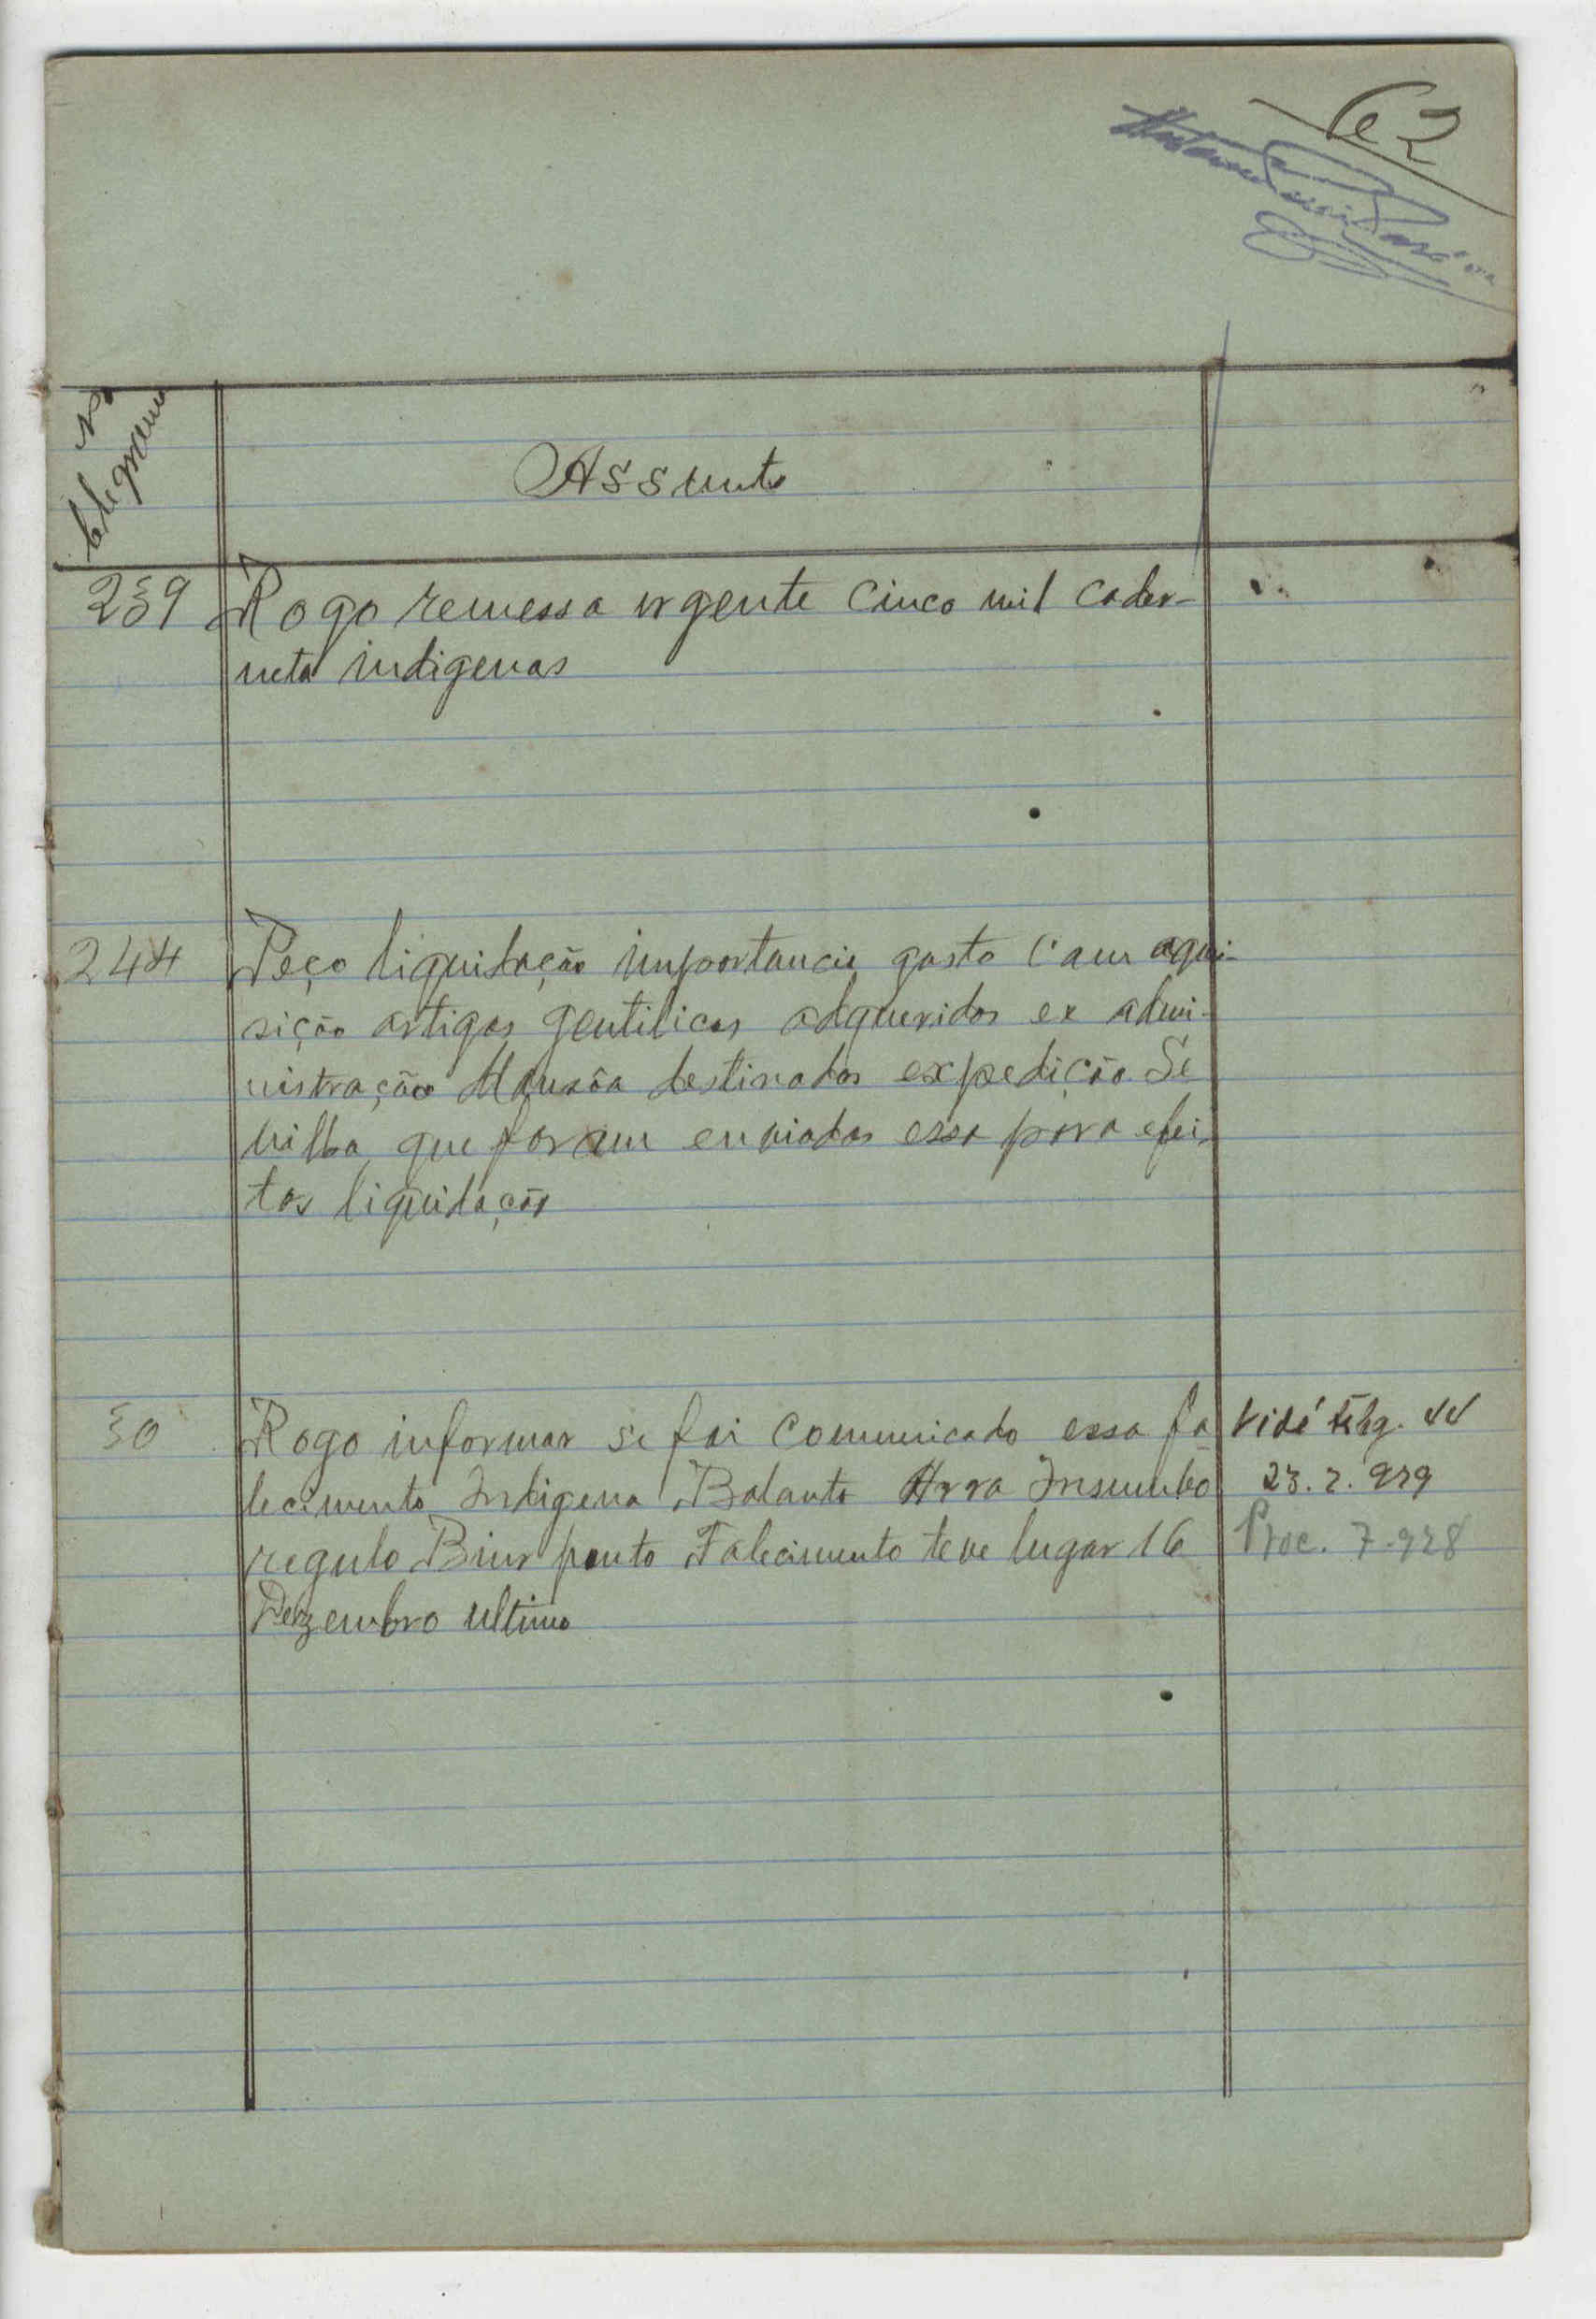 62
Nº
telegrama
Assunto
239 Rogo remessa urgente cinco mil cader-
neta indigenas
244 Peço liquidação importancia gasto com aqui-
sição artigos gentilicos adqueridos ex admi-
nistração Mansôa destinados expedição Se
vilha que foram enviados essa para efei-
tos liquidação
30 Rogo informar se foi comunicado essa fa
lecimento Indigena Balanta Insumbo
regulo ponto Falecimento teve lugar 16
Dezembro ultimo
Vidé telg.
23.2.929
Proc. 7-928